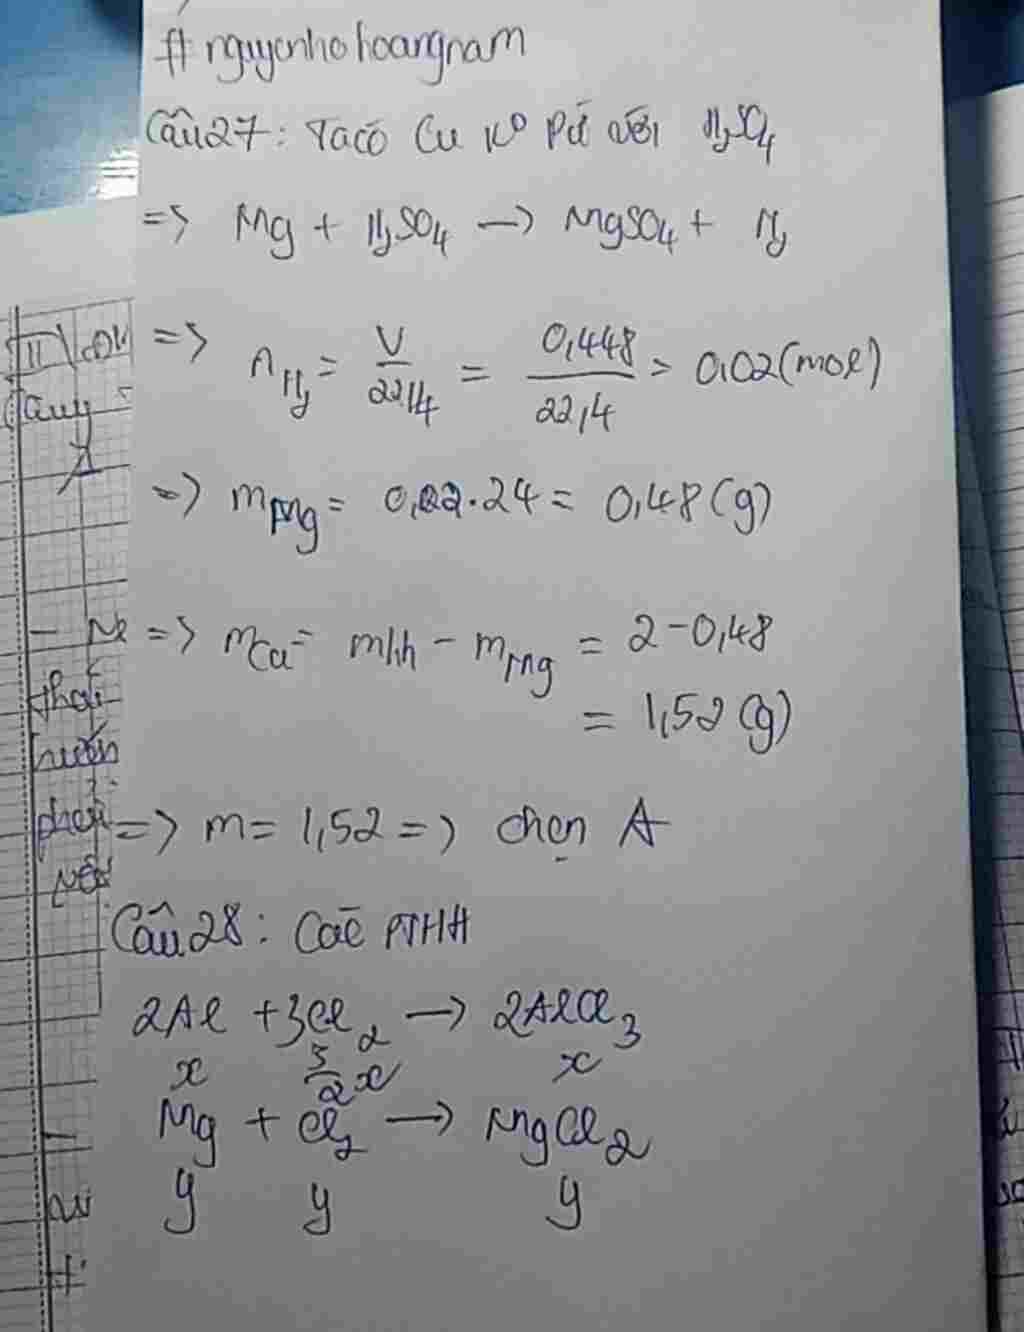 #nguyenhohoangnam
Câu 27: Ta có Cu K° Pứ với H2SO4
=> Mg + H2SO4 -> MgSO4 + H2
=> nH2 = V/22,4 = 0,448/22,4 = 0,02 (mol)
=> mMg = 0,02.24 = 0,48 (g)
=> mCu = mhh - mMg = 2 - 0,48
= 1,52 (g)
=> m = 1,52 => chọn A
Câu 28: Các PTHH
2Al + 3Cl2 -> 2AlCl3
x 3/2x x
Mg + Cl2 -> MgCl2
y y y